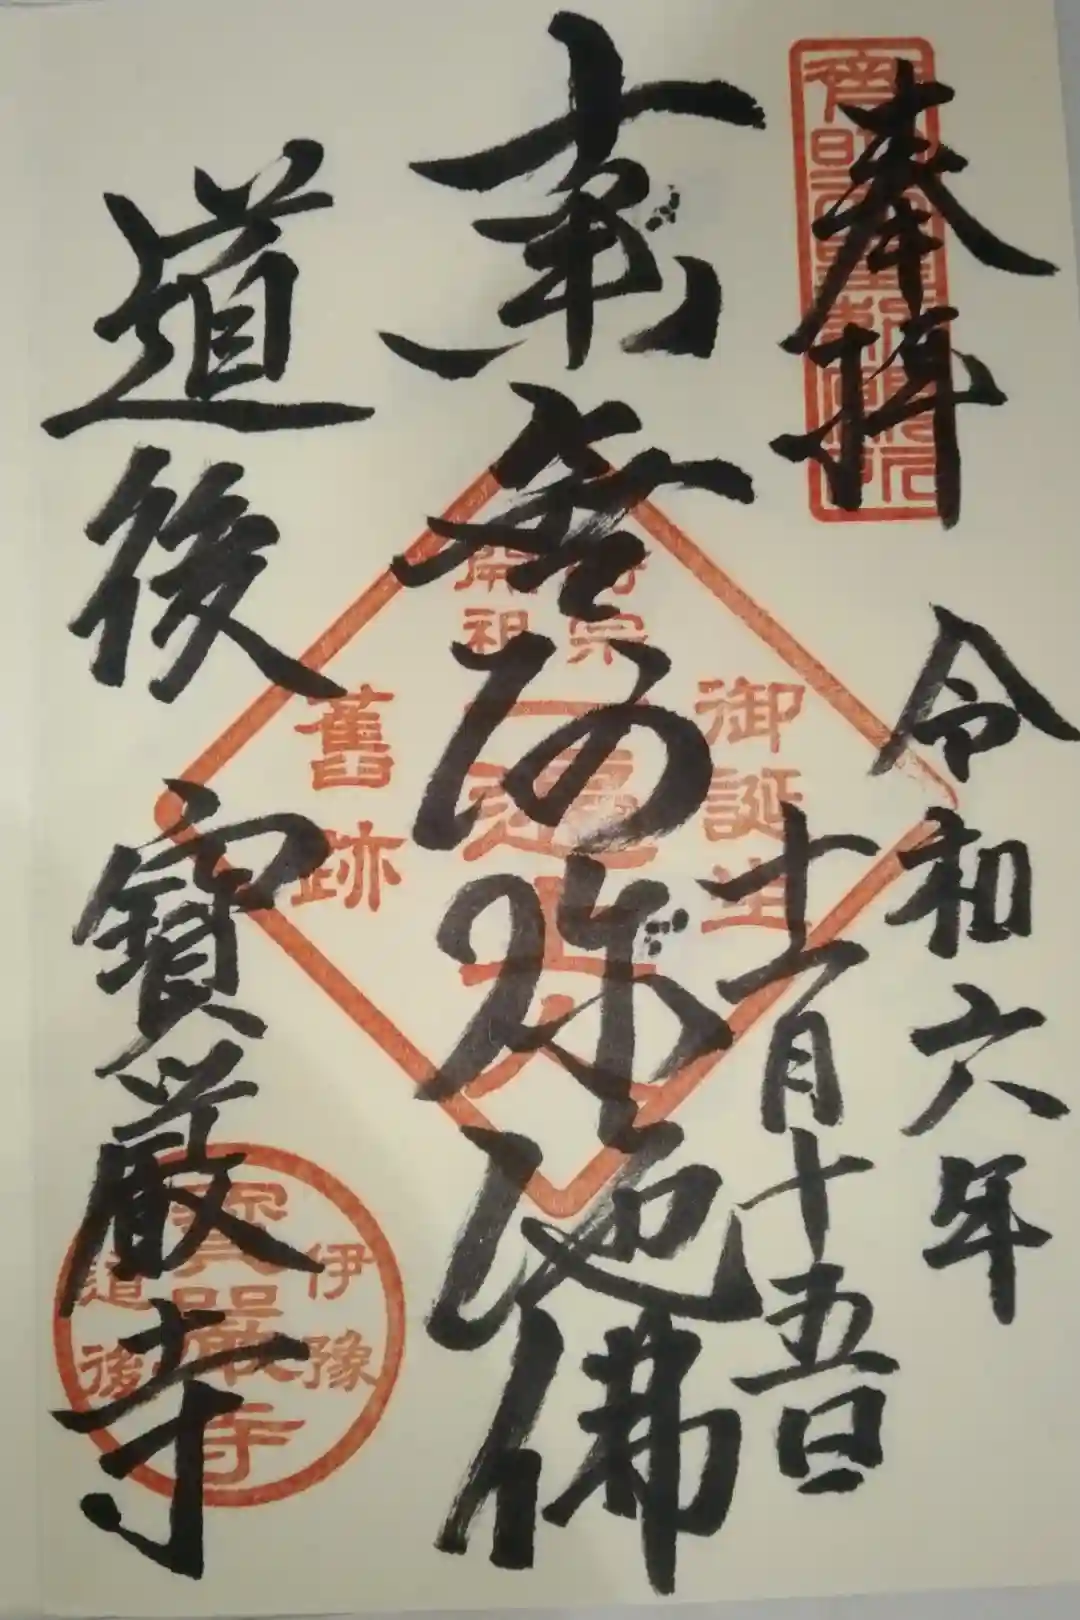 奉拝
令和六年
十一月十五日
南無阿弥陀佛
道後 寶厳寺
斉明天皇勅願所
時宗
開祖
御誕生
一遍上人
舊跡
伊豫
寶嚴寺
道後